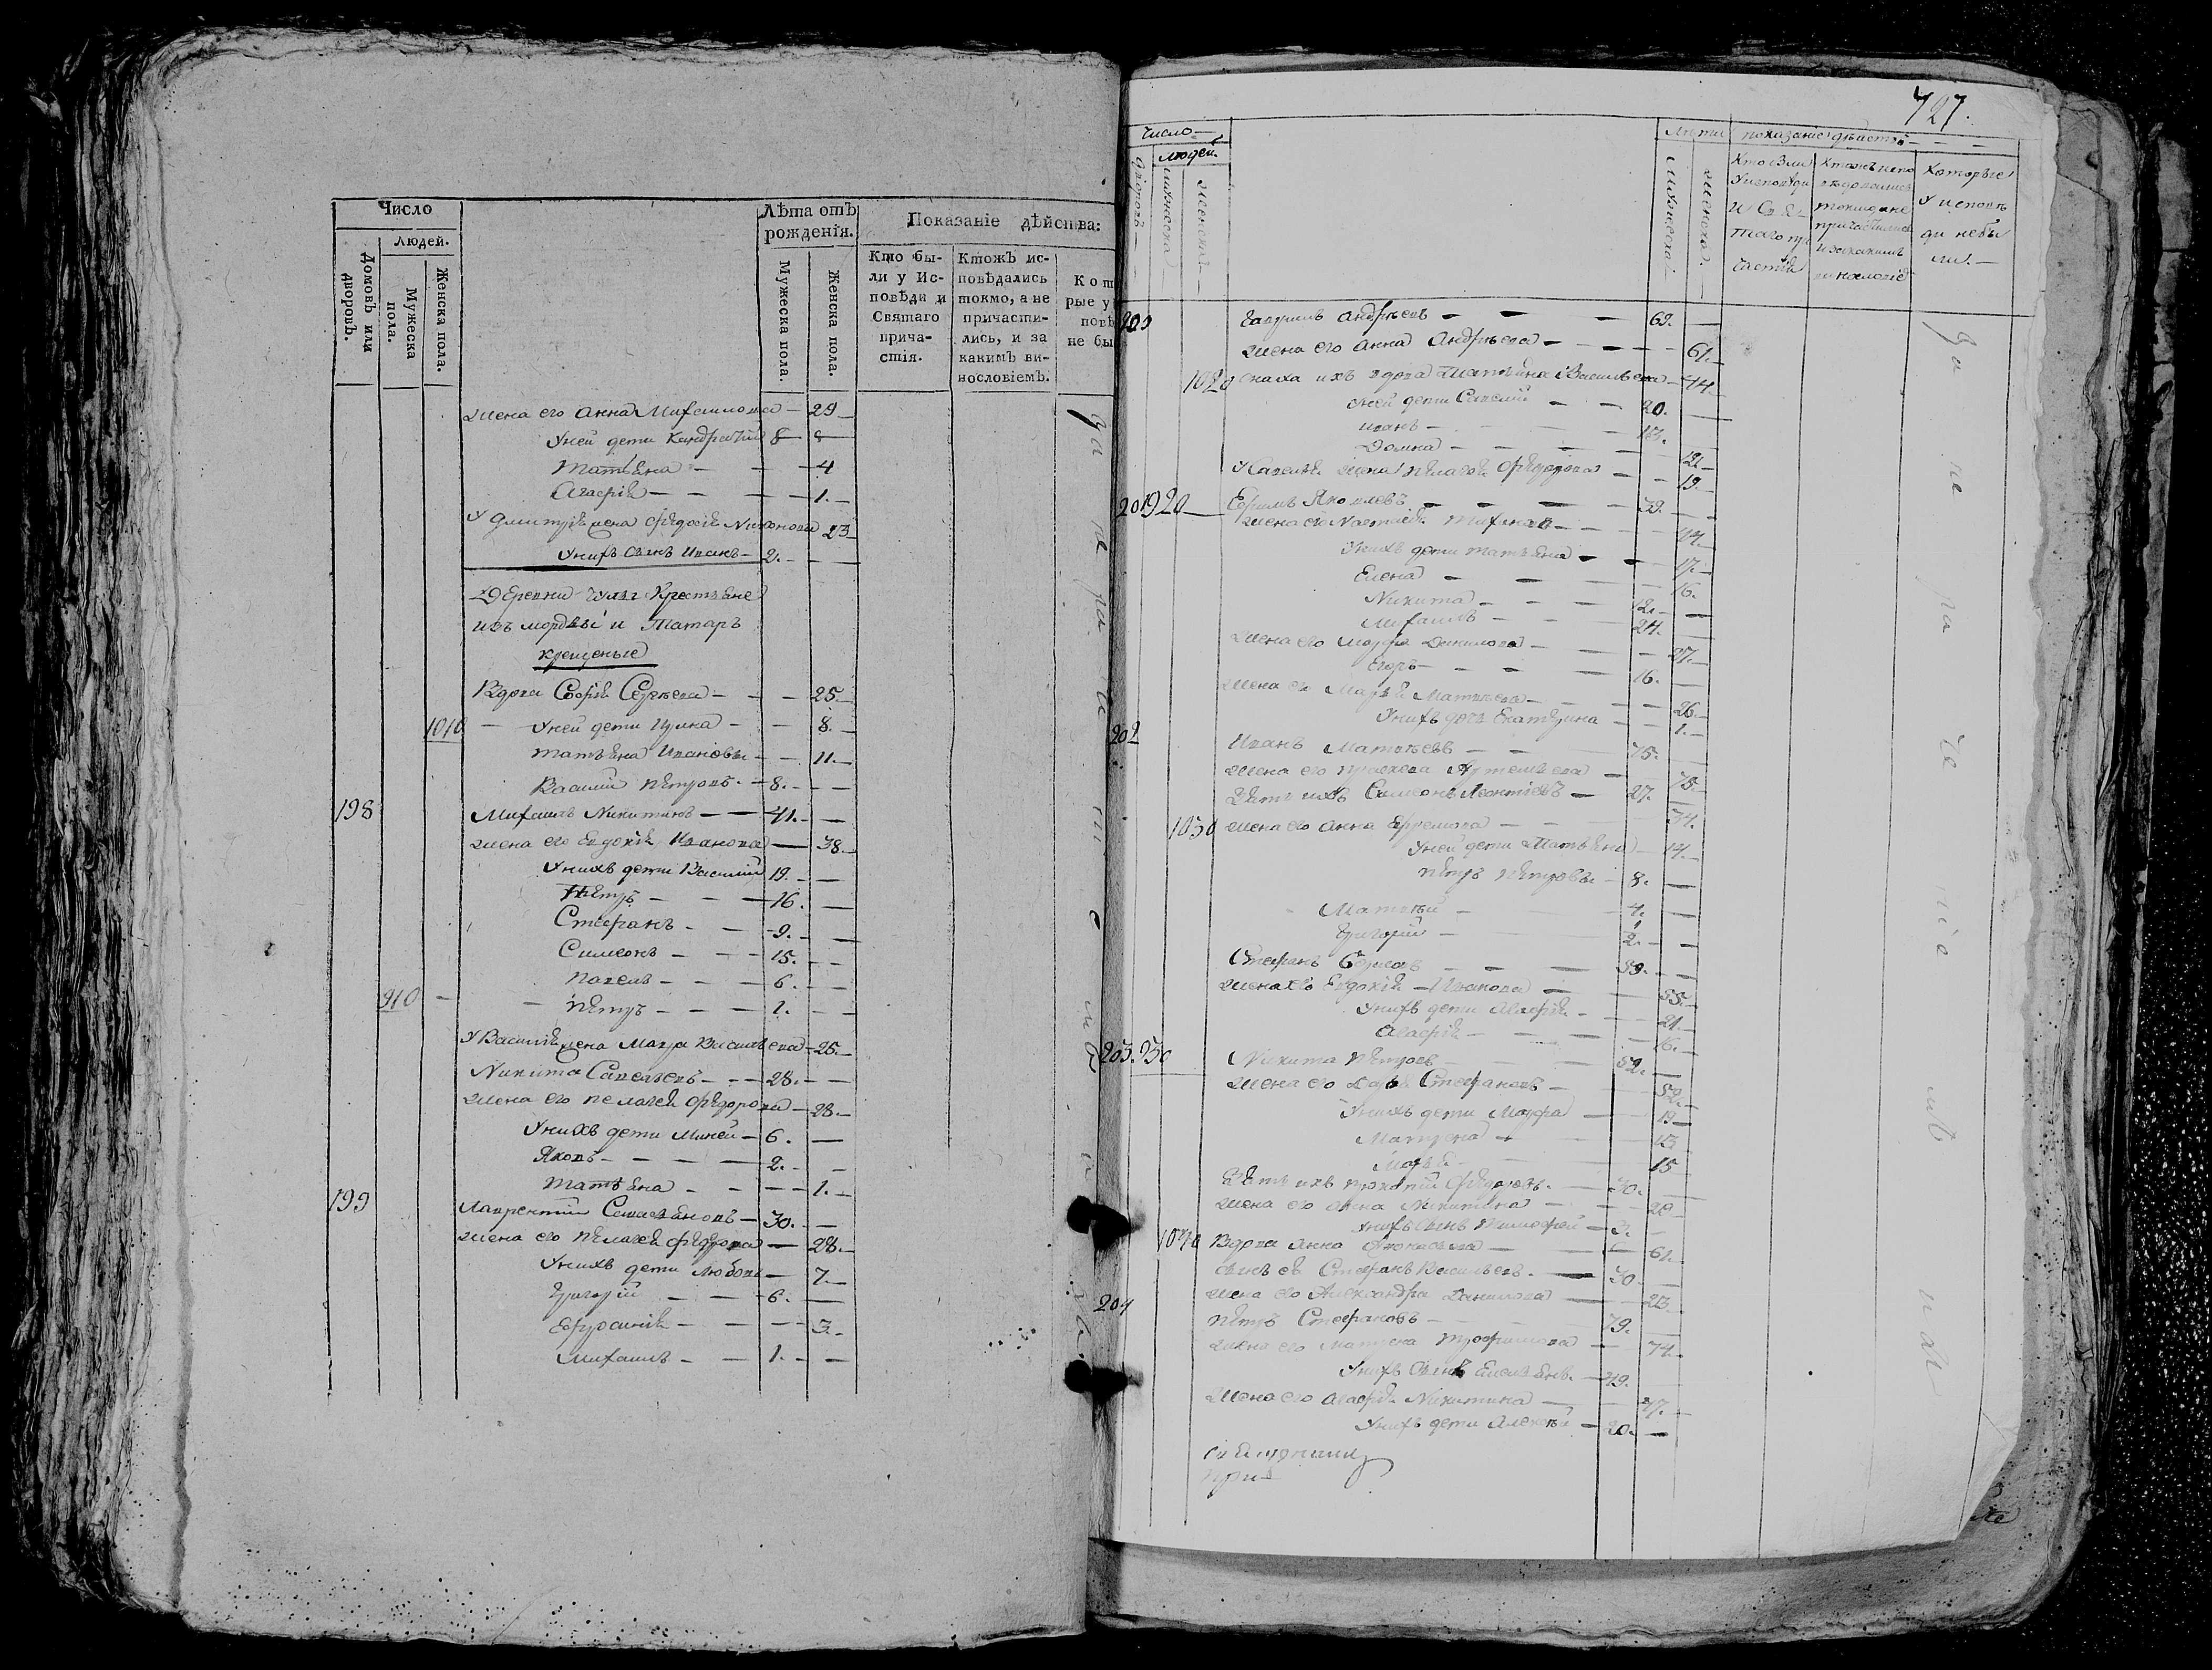 Число
Людей.
Домовъ или дворовъ.
Мужеска пола.
Женска пола.
Лѣта отъ рожденія.
Мужеска пола.
Женска пола.
Показаніе дѣйства:
Кто бы-
ли у Ис-
повѣди и
Святаго
прича-
стія.
Ктожъ ис-
повѣдались
токмо, а не
причасти-
лись, и за
какимъ ви-
нословіемъ.
Кот
рые у
повѣ
не бы
жена его Анна Михаилова — 29
У ней дети Кандратій 8
Татьяна — 4
Агафія — 1.
У Дмитрія жена Феодосія Никонова 23
У нихъ сынъ Иванъ — 2.
Деревни Крестьяне
изъ мордвы и Татаръ
крещеные
Вдова Софія Сергеева — 25
1010 — У ней дети Ирина — 8.
Татьяна Ивановы — 11.
Василий Петровъ — 8.
198 Михаилъ Никитинъ — 41.
жена его Евдокія Иванова — 38.
У нихъ дети Василий 19.
Петръ — 16.
Стефанъ — 9.
Симеонъ — 15.
Павелъ — 6.
910 — Петръ — 1.
У Василія жена Марфа Васильева — 25.
Никита Савельевъ — 28.
жена его Пелагея Федорова — 28.
У нихъ дети Миней — 6.
Яковъ — 2.
Татьяна — 1.
199 Лаврентий Севастьяновъ — 30.
жена его Пелагея Федорова — 28.
У нихъ дети Любовь — 7.
Григорій — 6.
Ефросинія — 3.
Михаилъ — 1.
727.
Число
людей.
дворовъ
мужеска
женска
Лѣта
мужеска
женска
показаніе дѣйства
Кто были
У исповѣди
и Свя
таго при
частія
Ктожъ испо
ведовались
токмо а не
причастились
и за какимъ
винословіе
Которые
У исповѣ
ди небы
ли.
200 Гаврилъ Андреевъ — 69.
жена его Анна Андреева — 61.
1020 снаха ихъ вдова Татьяна Васильева — 44.
У ней дети Савелий — 20.
Иванъ — 13.
Домна — 12.
У Савелья жена Пелагея Федорова — 19.
201 920 Ефимъ Яковлевъ — 39.
жена его Настасья — 44.
У нихъ дети Татьяна — 17.
Елена — 16.
Никита — 12.
Михаилъ — 24.
жена его Марфа Данилова — 27.
Егоръ — 16.
жена его Марья Матвеева — 26.
У нихъ дочь Екатерина — 1.
202 Иванъ Матвеевъ — 75.
жена его Прасковья Артемьева — 75.
Зять ихъ Симеонъ Леонтьевъ — 27.
1030 жена его Анна Ефремова — 34.
У ней дети Татьяна — 14.
Петръ Петровы — 8.
Матвей — 4.
Григорій — 2.
Стефанъ — 59.
жена его Евдокія Иванова — 55.
У нихъ дети Агафія — 21.
Агафія — 16.
203. 930 Никита Петровъ — 52.
жена его Дарья Стефанова — 52.
У нихъ дети Марфа — 19
Матрена — 13
Марья — 15
Зять ихъ Прокопій Федоровъ — 30.
жена его Анна Никитина — 29
У нихъ сынъ Тимофей — 3.
1040 Вдова Анна Афонасьева — 61.
сынъ ея Стефанъ Васильевъ — 30.
жена его Александра Данилова — 23
204 Петръ Стефановъ — 79.
жена его Матрена Трофимова — 74.
У нихъ сынъ Емельянъ — 49.
жена его Агафія Никитина — 47.
У нихъ дети Алексей — 20.